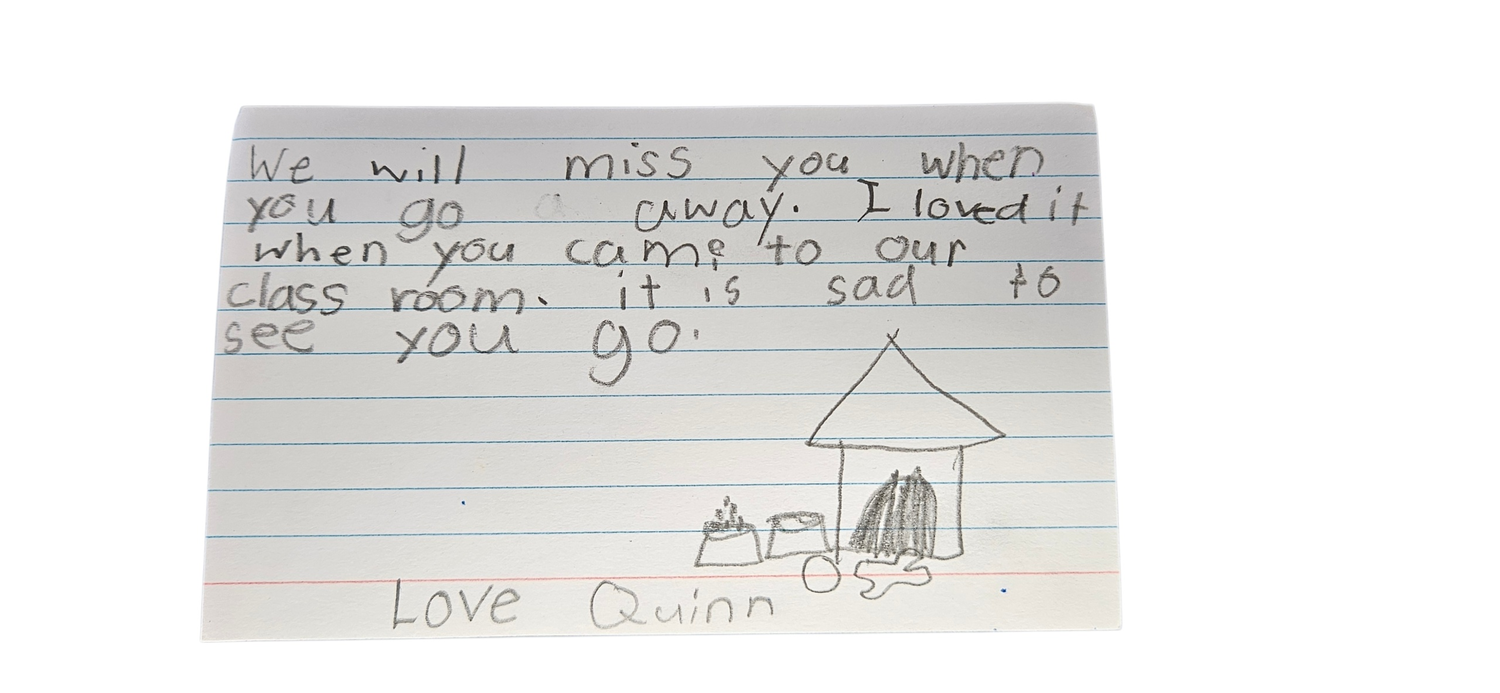 We will miss you when
you go away. I loved it
when you came to our
class room. it is sad to
see you go.
Love Quinn